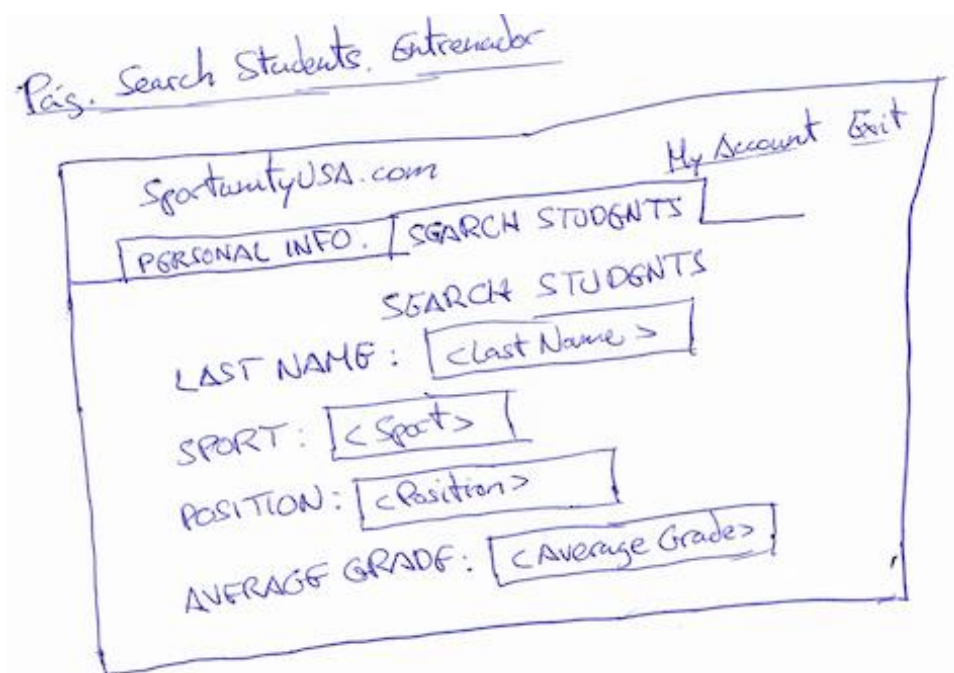 Pág. Search Students. Entrenador
SportunityUSA.com My Account Exit
PERSONAL INFO. SEARCH STUDENTS
SEARCH STUDENTS
LAST NAME: <Last Name>
SPORT: <Sport>
POSITION: <Position>
AVERAGE GRADE: <Average Grade>